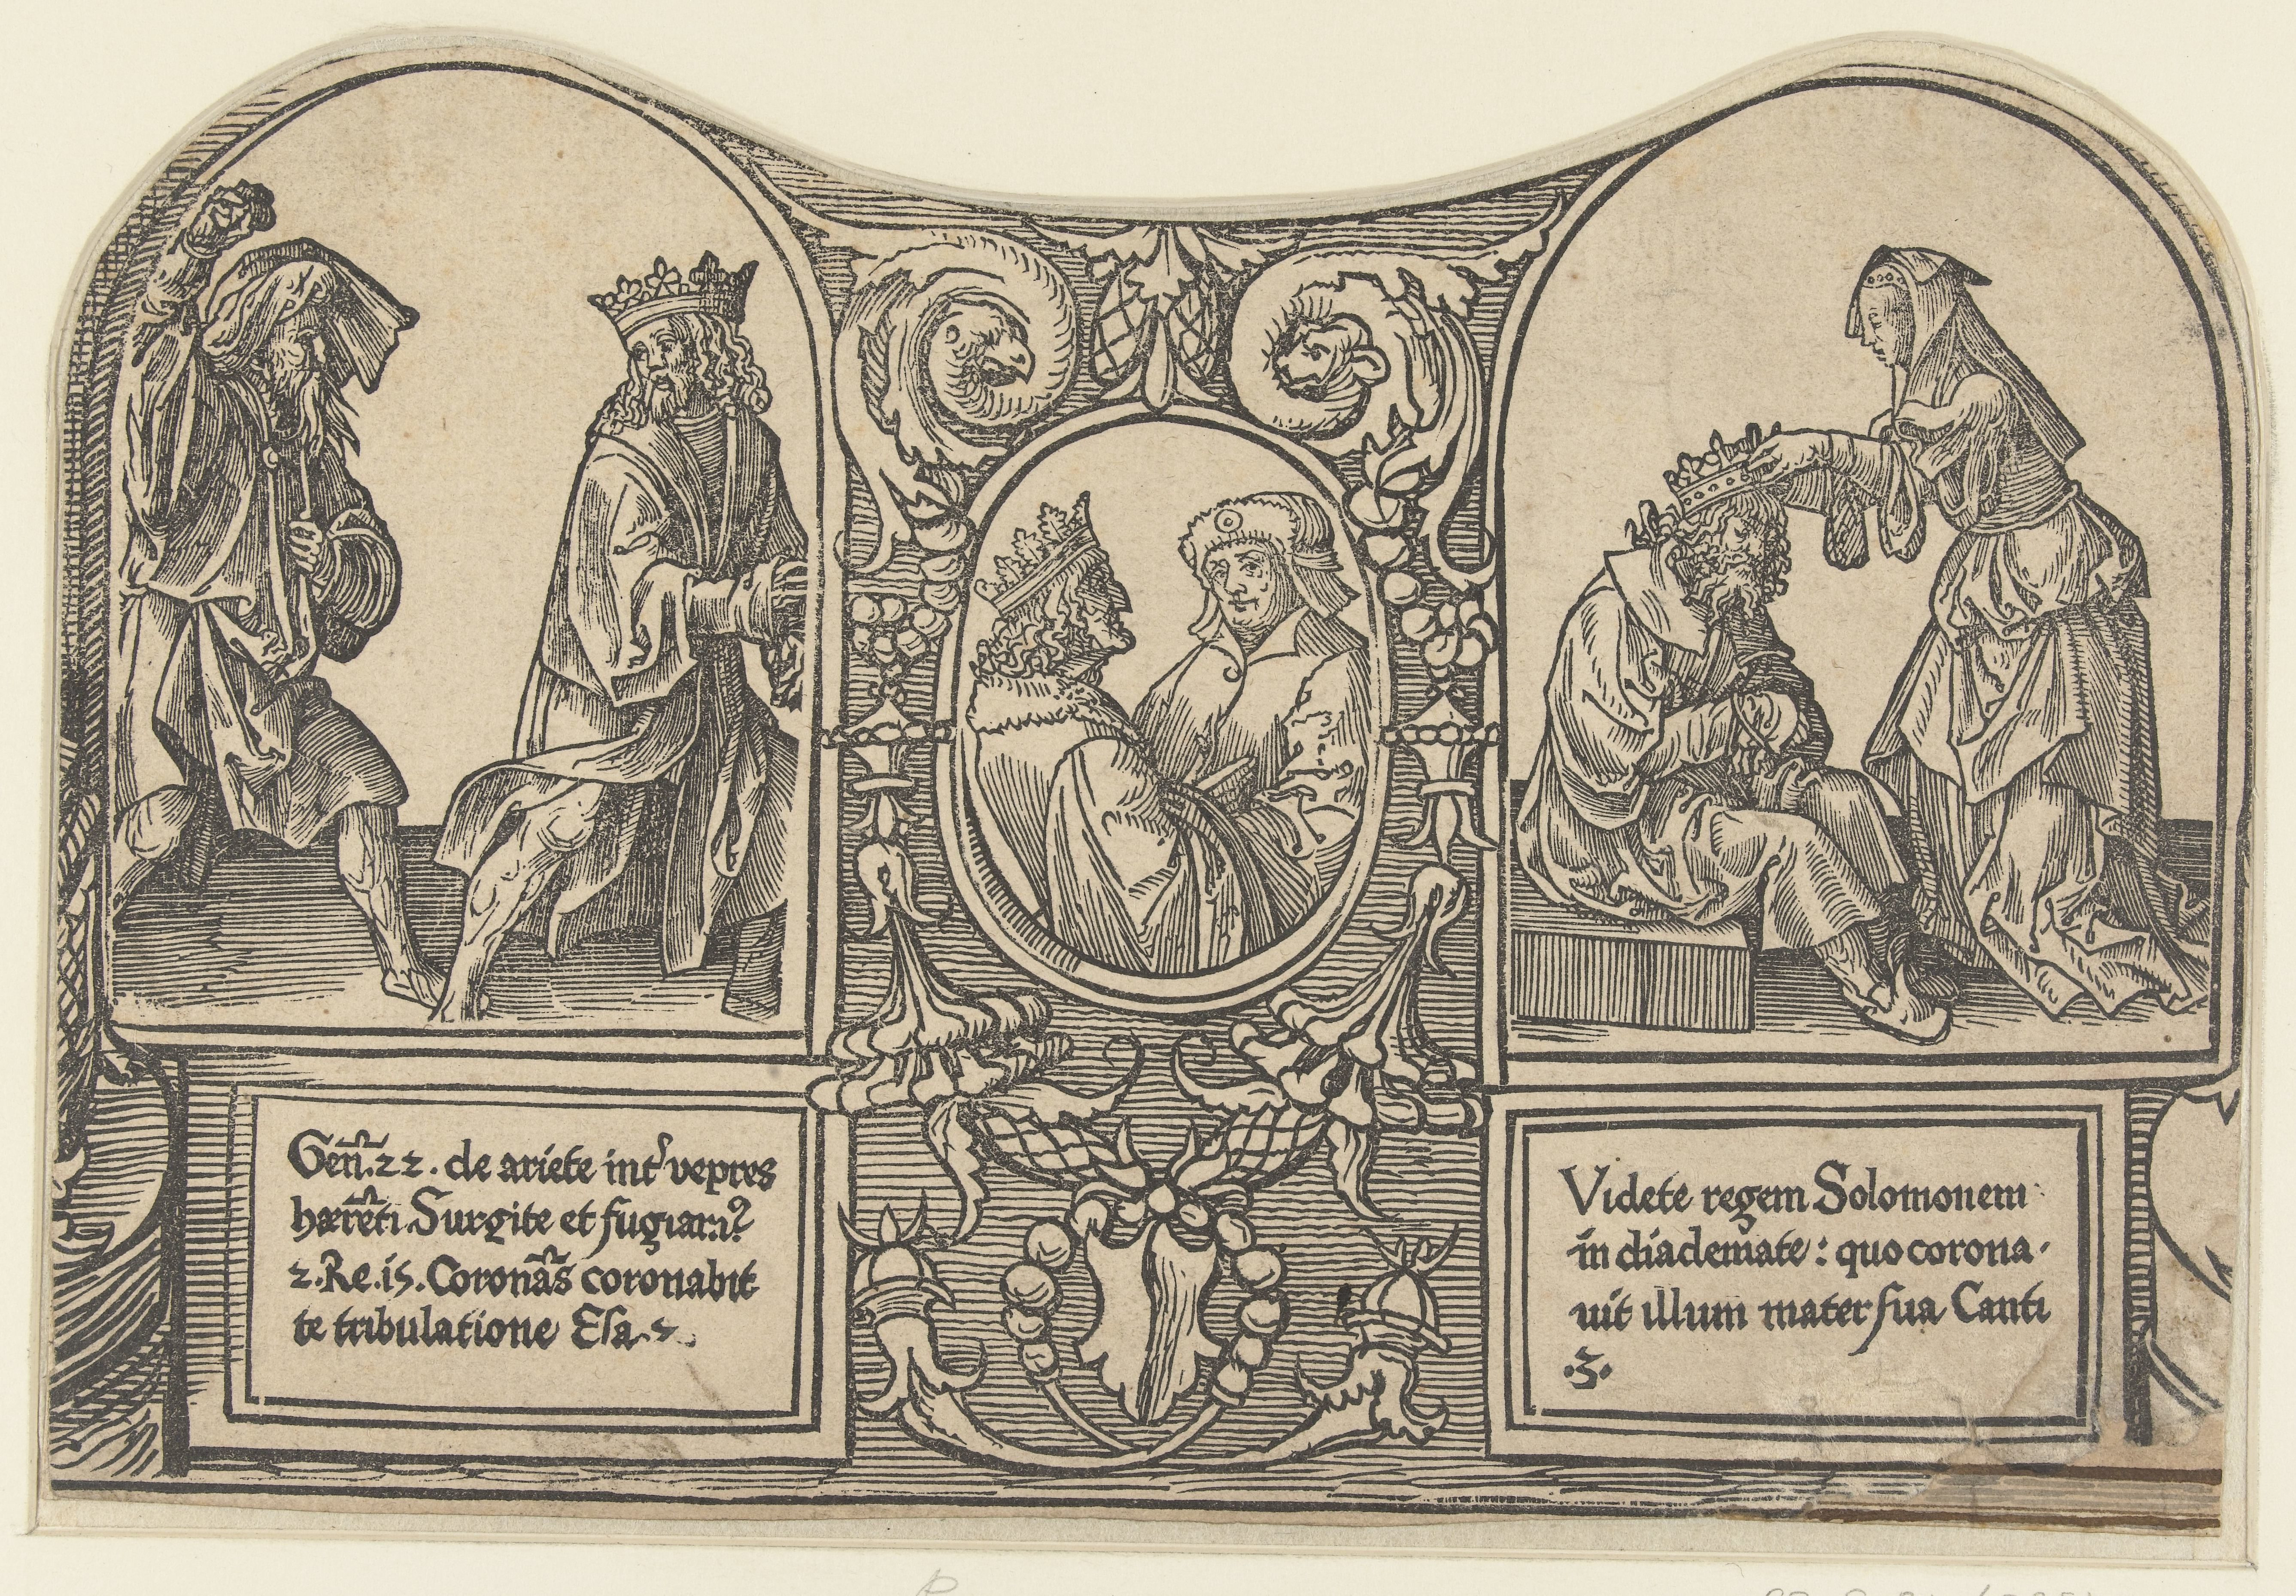 Geñ.22. de ariete int᷑ vepres
hær̃eti. Surgite et fugiamꝰ
2.Re.15. Coronãs coronabit
te tribulatione Esa.
Videte regem Solomonem
in diademate: quo corona-
uit illum mater sua Canti
.3.